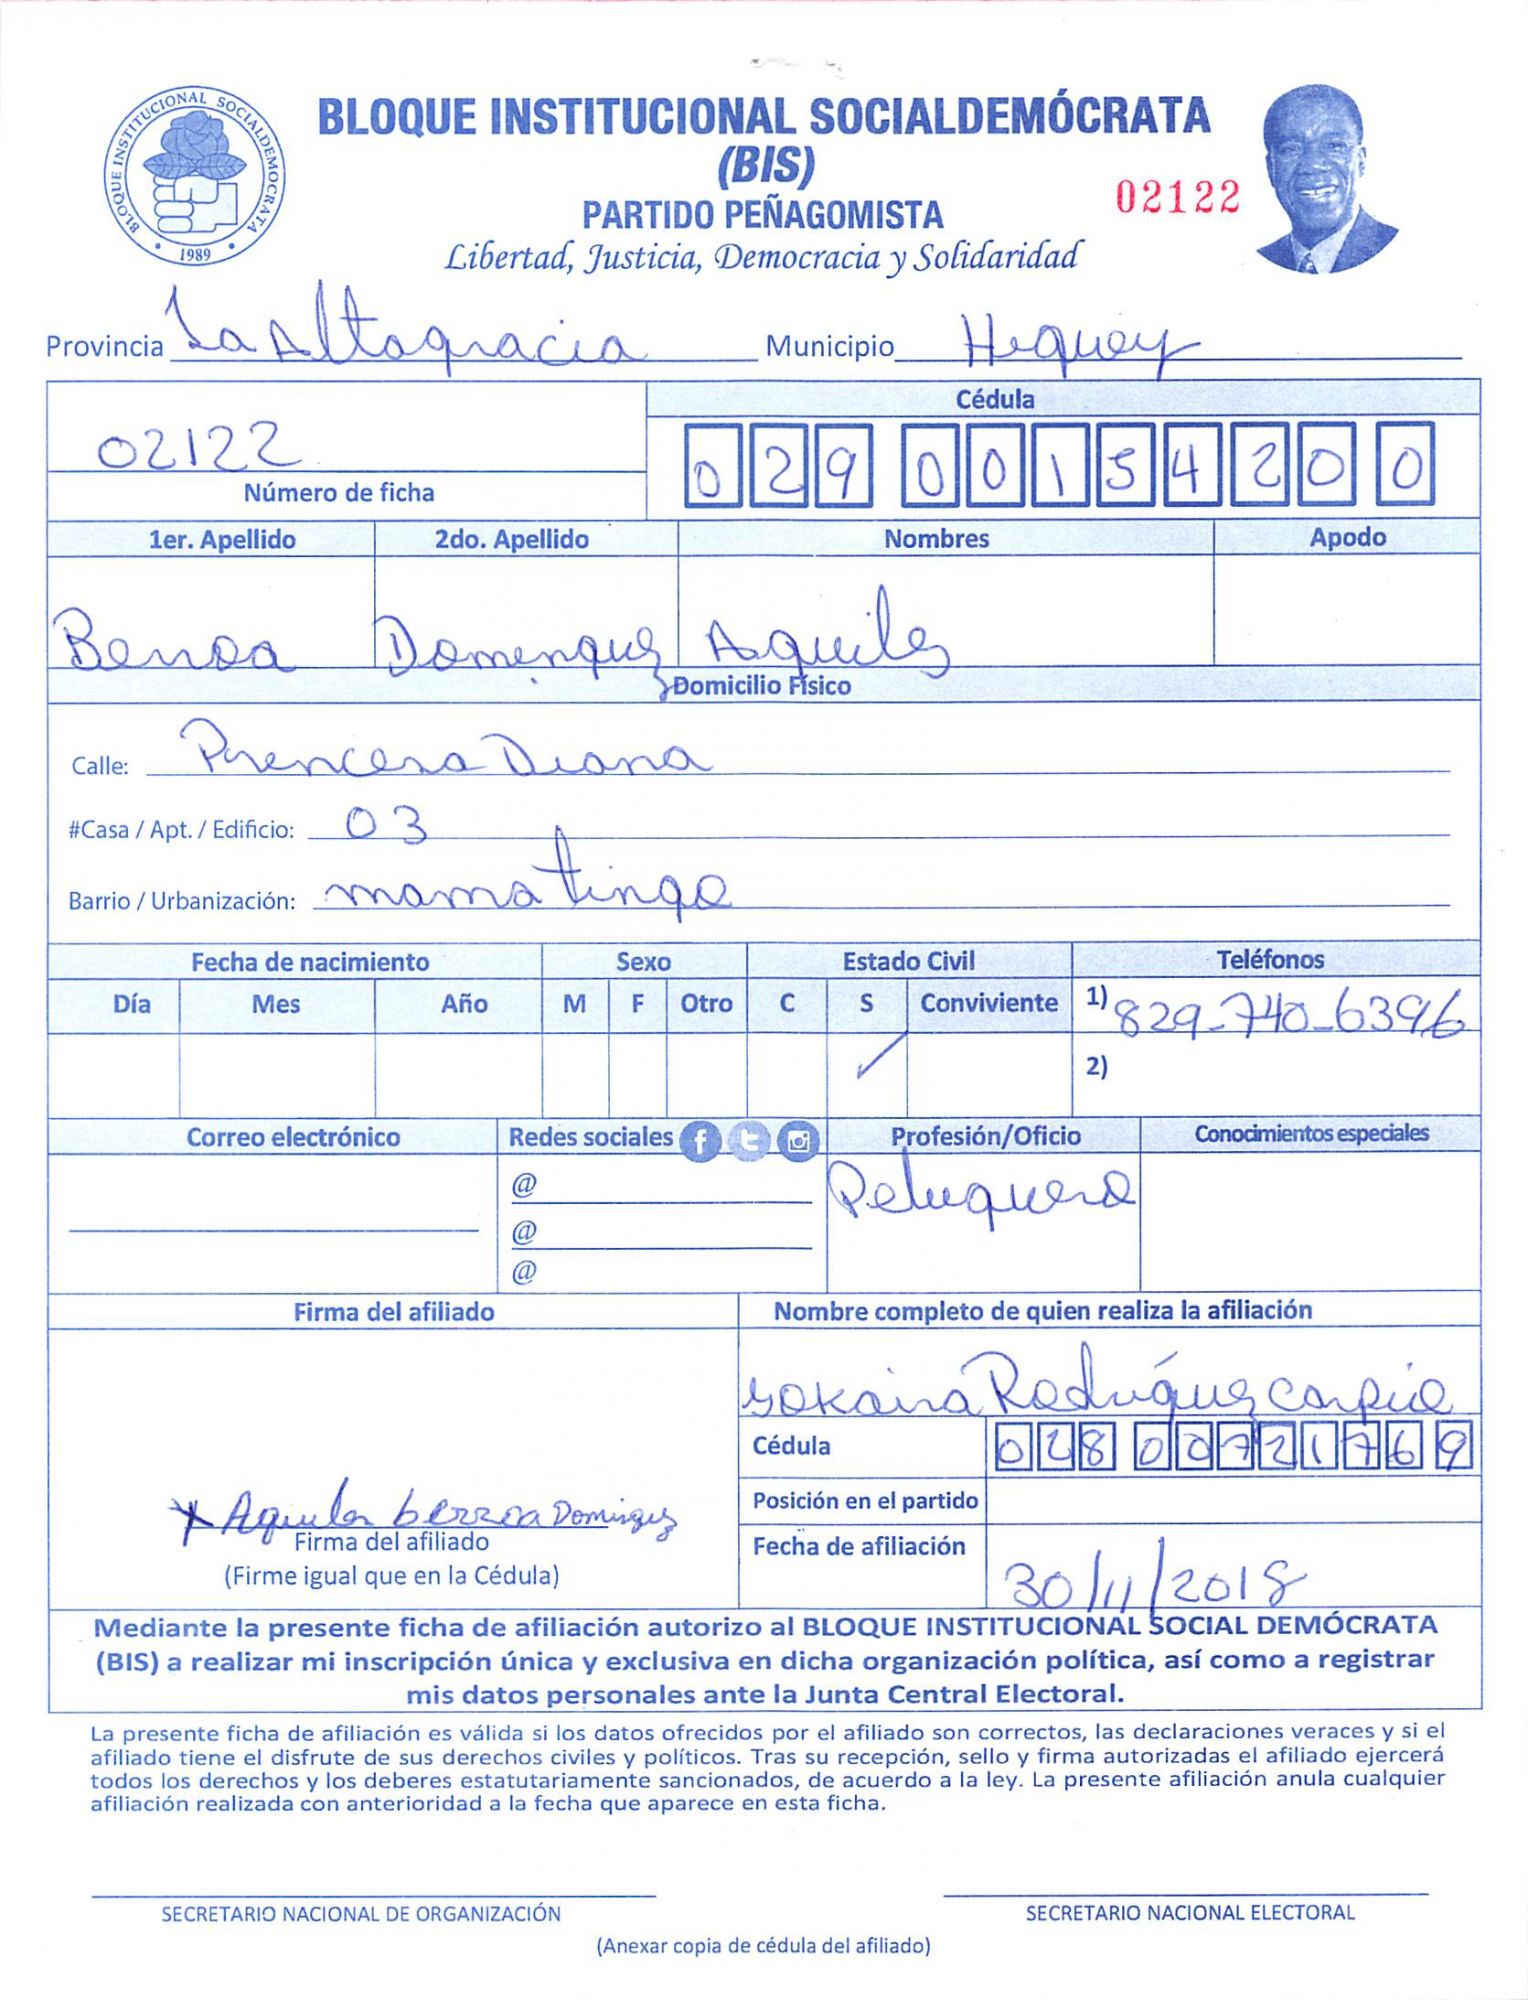 BLOQUE INSTITUCIONAL SOCIALDEMOCRATA
1989
BLOQUE INSTITUCIONAL SOCIALDEMÓCRATA
(BIS)
PARTIDO PEÑAGOMISTA
02122
Libertad, Justicia, Democracia y Solidaridad
Provincia La Altagracia Municipio Higuey
Cédula
02122
029 0015420 0
Número de ficha
1er. Apellido 2do. Apellido Nombres Apodo
Berroa Dominguez Aquiles
Domicilio Físico
Calle: Princesa Diana
#Casa / Apt. / Edificio: 03
Barrio / Urbanización: mama tingo
Fecha de nacimiento Sexo Estado Civil Teléfonos
Día Mes Año M F Otro C S Conviviente 1) 829-740-6396
2)
Correo electrónico Redes sociales Profesión/Oficio Conocimientos especiales
@ Peluquero
@
@
Firma del afiliado Nombre completo de quien realiza la afiliación
Yokaira Rodríguez Carpio
Cédula 028 0072176 9
Posición en el partido
x Aquiles Berroa Dominguez
Firma del afiliado
(Firme igual que en la Cédula)
Fecha de afiliación 30/11/2018
Mediante la presente ficha de afiliación autorizo al BLOQUE INSTITUCIONAL SOCIAL DEMÓCRATA
(BIS) a realizar mi inscripción única y exclusiva en dicha organización política, así como a registrar
mis datos personales ante la Junta Central Electoral.
La presente ficha de afiliación es válida si los datos ofrecidos por el afiliado son correctos, las declaraciones veraces y si el
afiliado tiene el disfrute de sus derechos civiles y políticos. Tras su recepción, sello y firma autorizadas el afiliado ejercerá
todos los derechos y los deberes estatutariamente sancionados, de acuerdo a la ley. La presente afiliación anula cualquier
afiliación realizada con anterioridad a la fecha que aparece en esta ficha.
SECRETARIO NACIONAL DE ORGANIZACIÓN SECRETARIO NACIONAL ELECTORAL
(Anexar copia de cédula del afiliado)